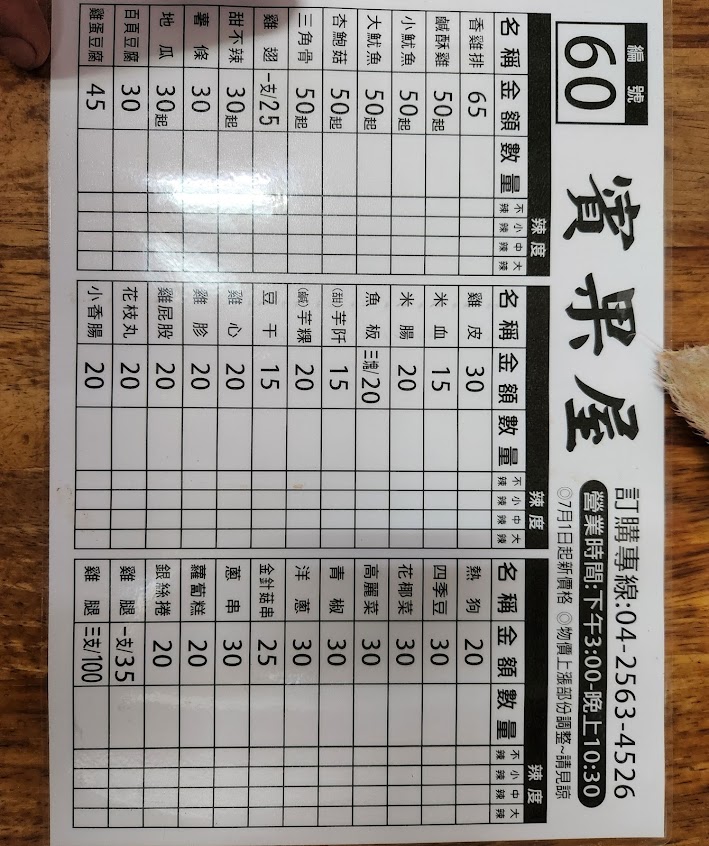 編號
60
濱果屋
訂購專線:04-2563-4526
營業時間:下午3:00-晚上10:30
◎7月1日起新價格 ◎物價上漲部份調整~請見諒
名稱 金額 數量 辣度 不辣 小辣 中辣 大辣
香雞排 65
鹹酥雞 50起
小魷魚 50起
大魷魚 50起
杏鮑菇 50起
三角骨 50起
雞翅 一支/25
甜不辣 30起
薯條 30
地瓜 30起
百頁豆腐 30
雞蛋豆腐 45
名稱 金額 數量 辣度 不辣 小辣 中辣 大辣
雞皮 30
米血 15
米腸 20
魚板 三塊/20
(甜)芋阡 15
(鹹)芋粿 20
豆干 15
雞心 20
雞胗 20
雞屁股 20
花枝丸 20
小香腸 20
名稱 金額 數量 辣度 不辣 小辣 中辣 大辣
熱狗 20
四季豆 30
花椰菜 30
高麗菜 30
青椒 30
洋蔥 30
金針菇串 25
蔥串 30
蘿蔔糕 20
銀絲捲 20
雞腿 一支/35
雞腿 三支/100